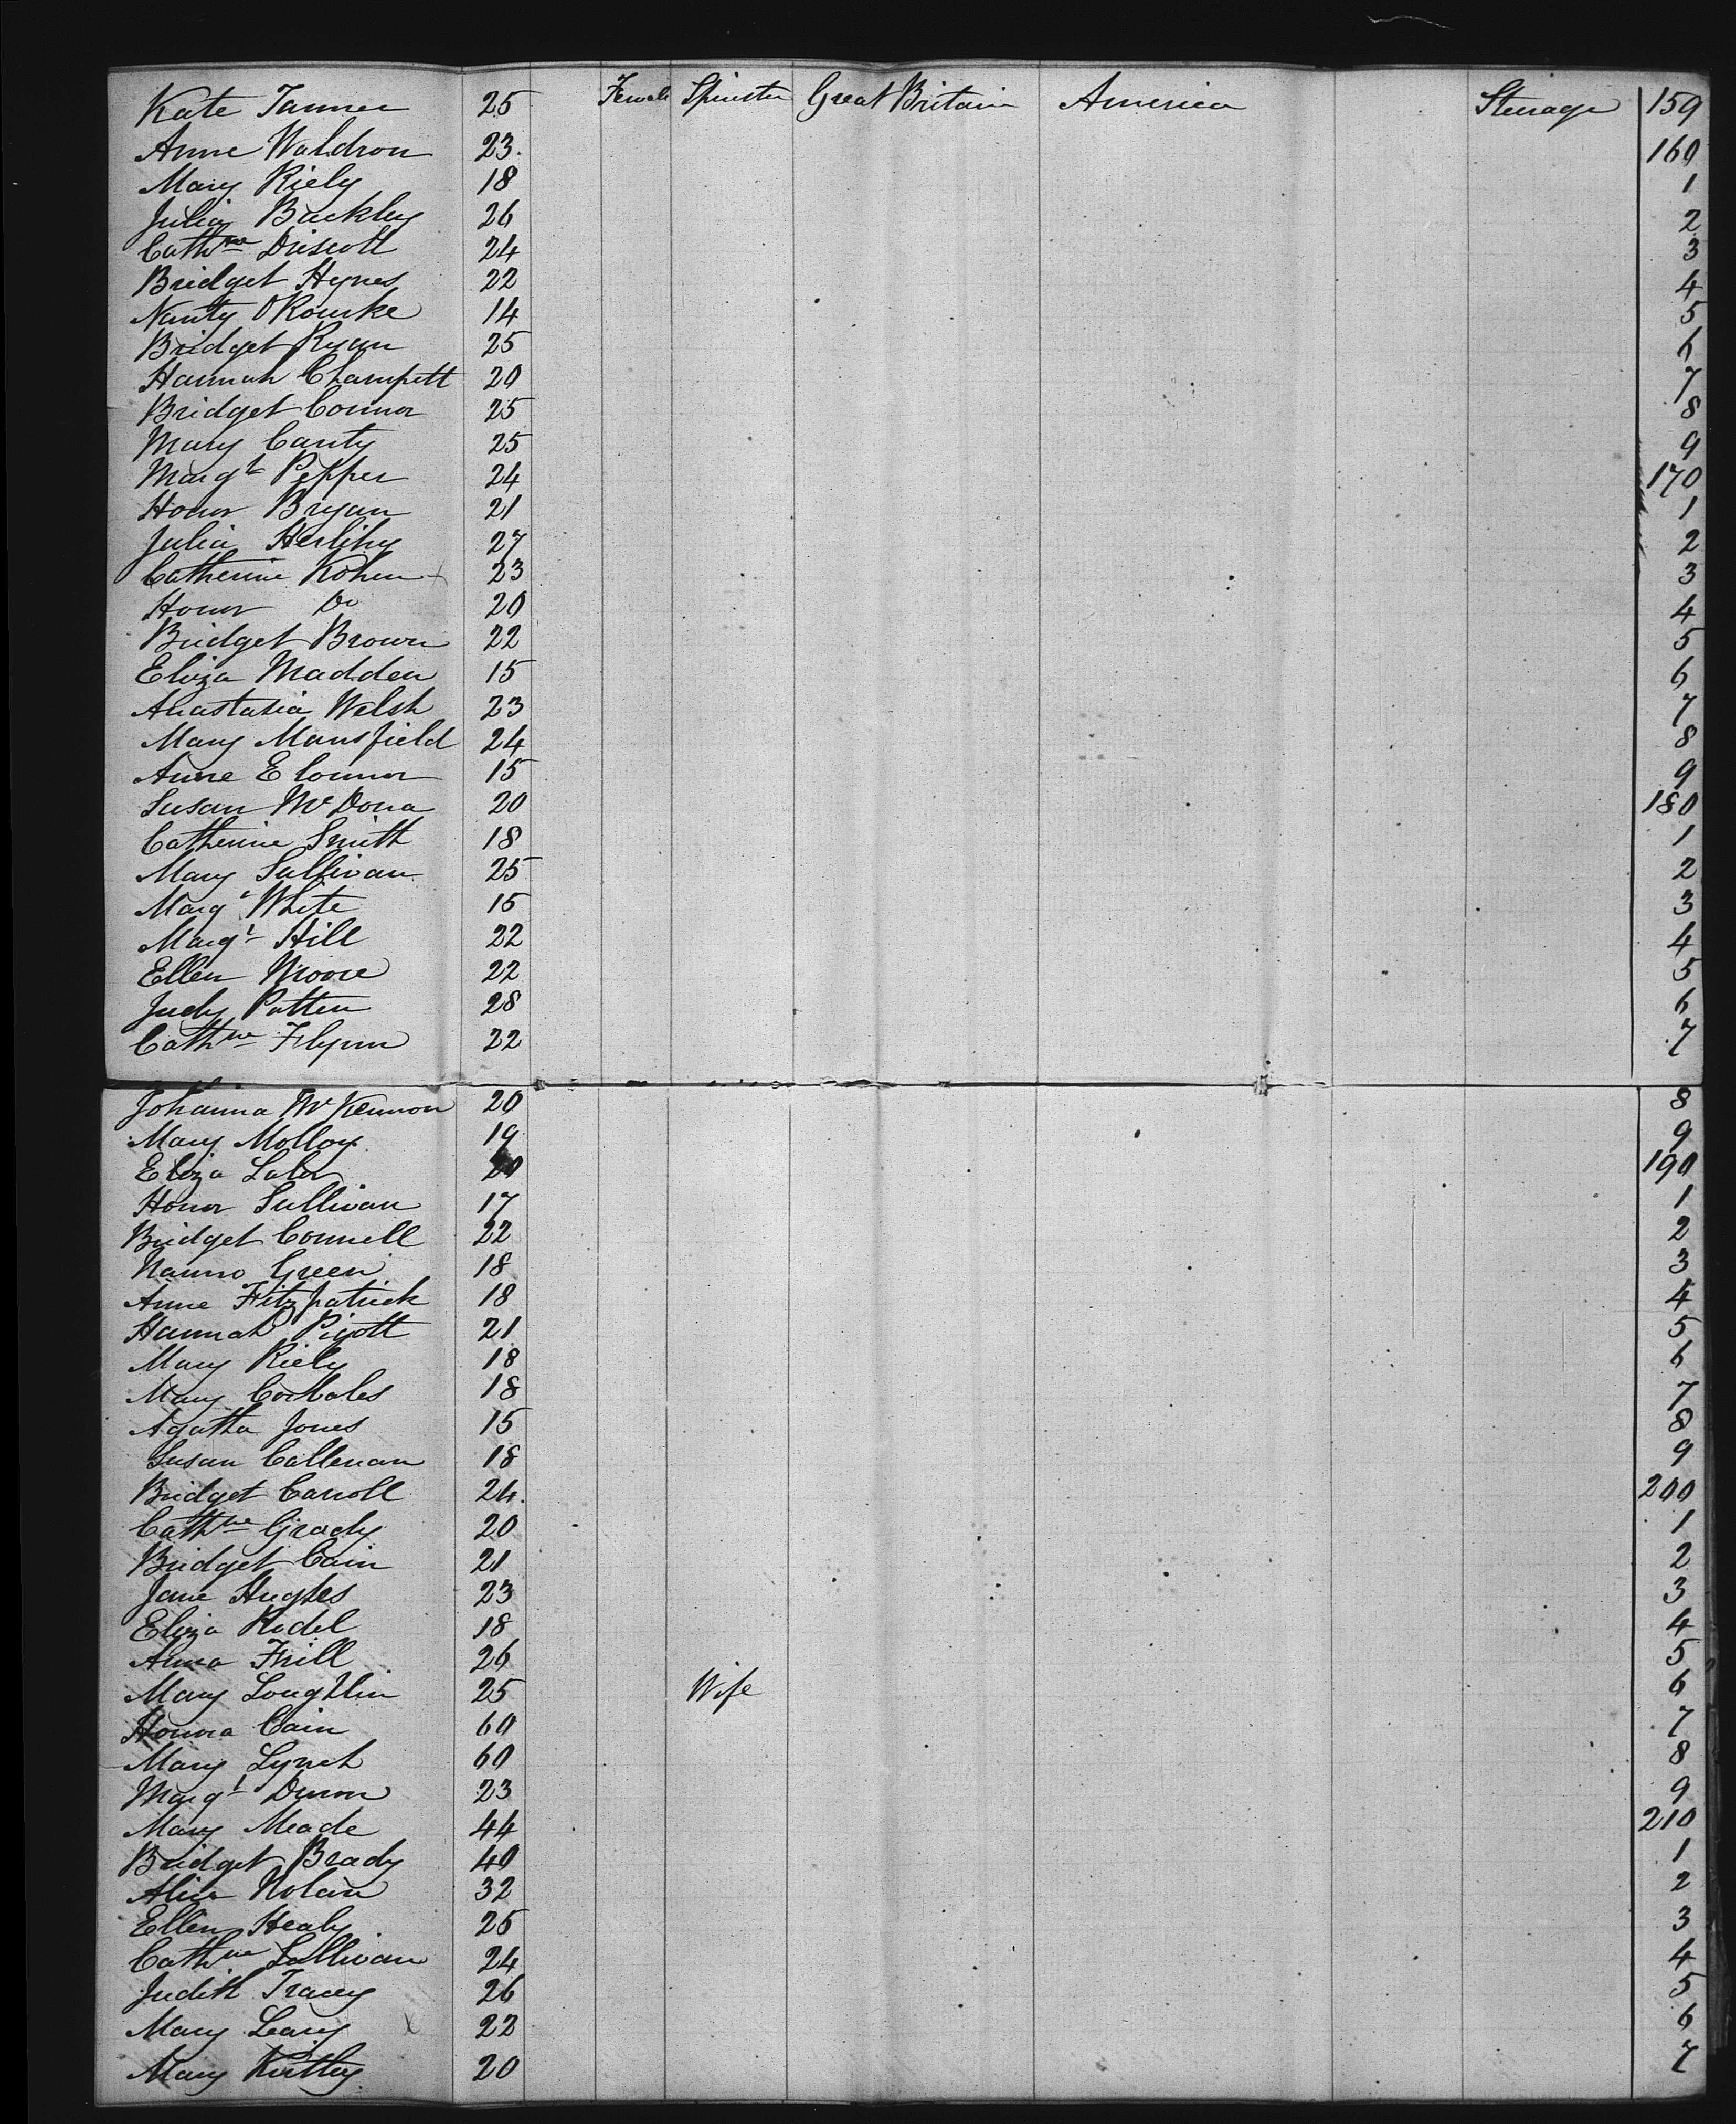 Kate Tanner 25 Female Spinster Great Britain America Steerage 159
Anne Waldron 23. 160
Mary Riely 18 1
Julia Buckley 26 2
Cathne Driscoll 24 3
Bridget Hynes 22 4
Nanty O'Rourke 14 5
Bridget Ryan 25 6
Hannah Champett 20 7
Bridget Connor 25 8
Mary Canty 25 9
Margt Pepper 24 170
Honor Bryan 21 1
Julia Herlihy 27 2
Catherine Kohen 23 3
Honor Do 20 4
Bridget Brown 22 5
Eliza Madden 15 6
Anastasia Welsh 23 7
Mary Mansfield 24 8
Anne E Connor 15 9
Susan McDona 20 180
Catherine Smith 18 1
Mary Sullivan 25 2
Margt White 15 3
Margt Hill 22 4
Ellen Moore 22 5
Judy Patten 28 6
Cathne Flynn 22 7
Johanna McKennon 20 8
Mary Molloy 19 9
Eliza Lalor 20 190
Honor Sullivan 17 1
Bridget Connell 22 2
Nanno Green 18 3
Anne Fitzpatrick 18 4
Hannah Pigott 21 5
Mary Riely 18 6
Mary 18 7
Agatha Jones 15 8
Susan Callenan 18 9
Bridget Carroll 24. 200
Cathne Grady 20 1
Bridget Cain 21 2
Jane Hughes 23 3
Eliza Kodel 18 4
Anna Frill 26 5
Mary Loughlin 25 Wife 6
Honora Cain 60 7
Mary Lynch 60 8
Margt Dunon 23 9
Mary Meade 44 210
Bridget Brady 40 1
Alice Nolan 32 2
Ellen Healy 25 3
Cathne Sullivan 24 4
Judith Tracey 26 5
Mary Leary X 22 6
Mary Kirtley 20 7